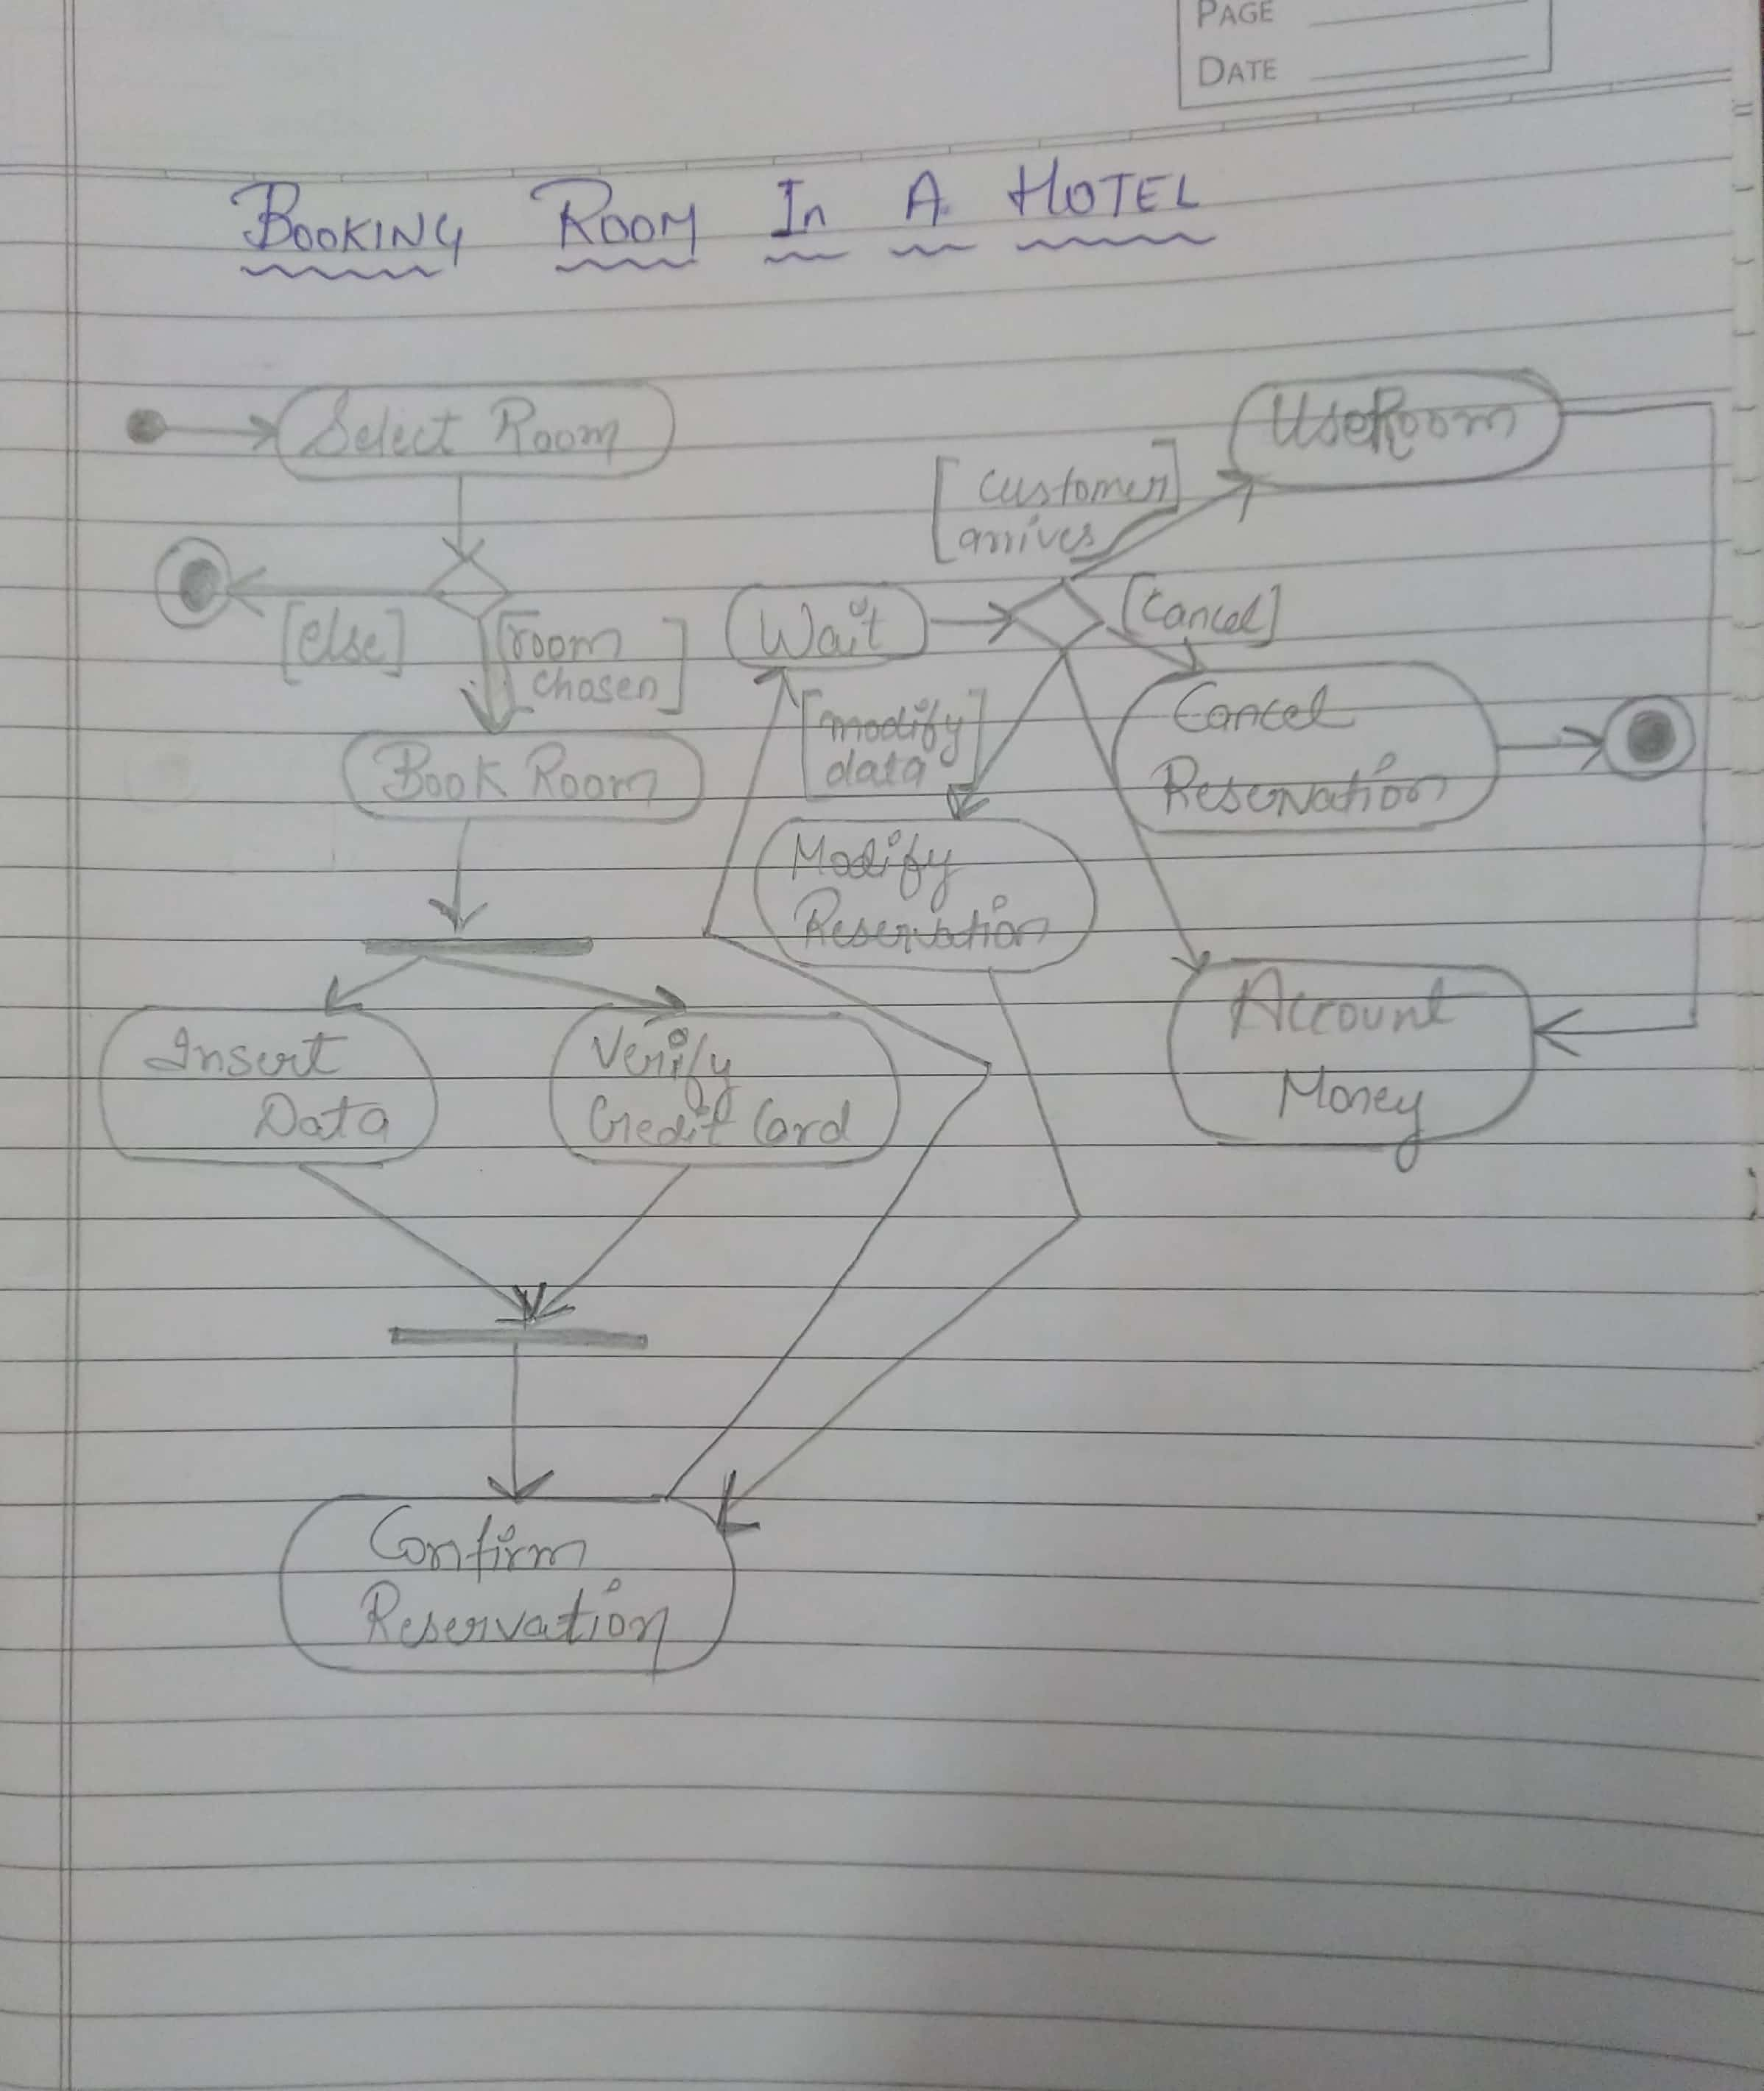 PAGE
DATE
BOOKING ROOM In A HOTEL
Select Room
[else]
[room
chosen]
Book Room
Insert
Data
Verify
Credit Card
Confirm
Reservation
Wait
[customer
arrives]
UseRoom
[Cancel]
Cancel
Reservation
[modify
data]
Modify
Reservation
Account
Money